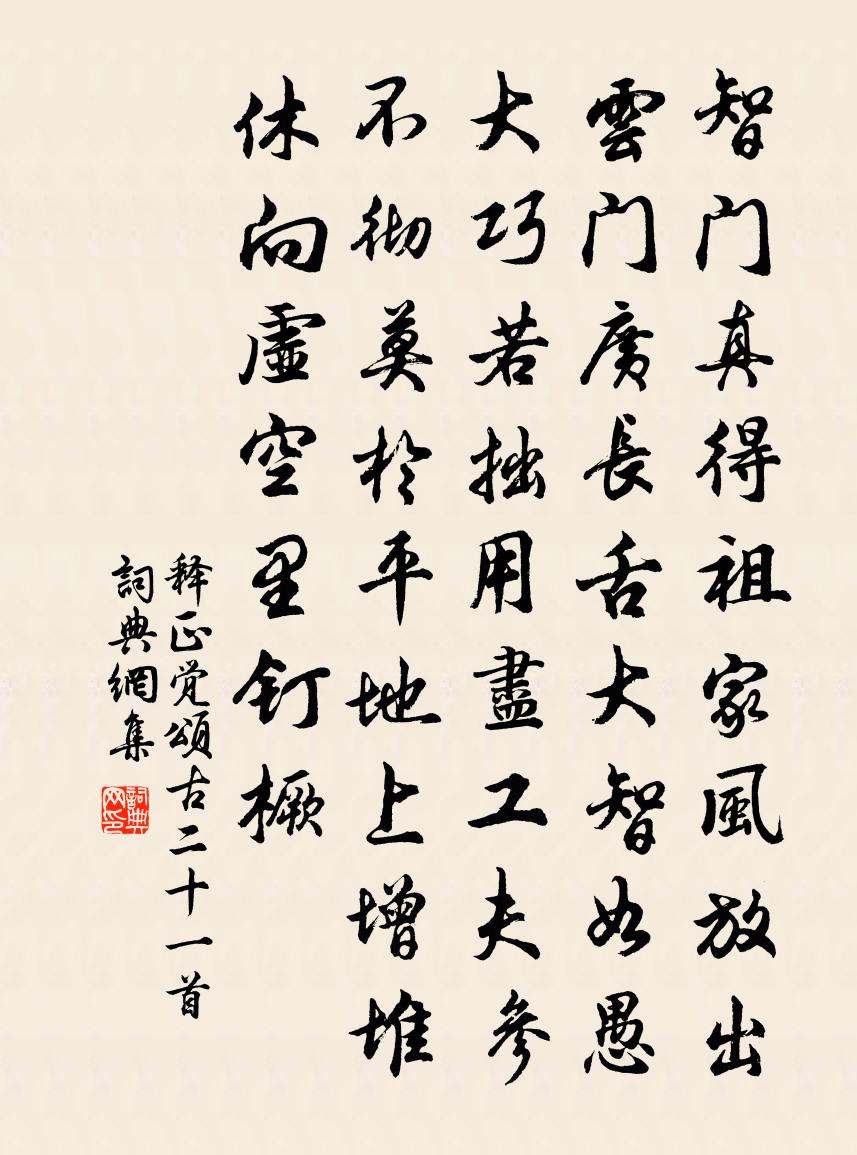 智门真得祖家風放出
雲门廣長舌大智如愚
大巧若拙用盡工夫參
不彻莫於平地上增堆
休向虛空里钉橛
释正觉頌古二十一首
詞典網集
詞典网印